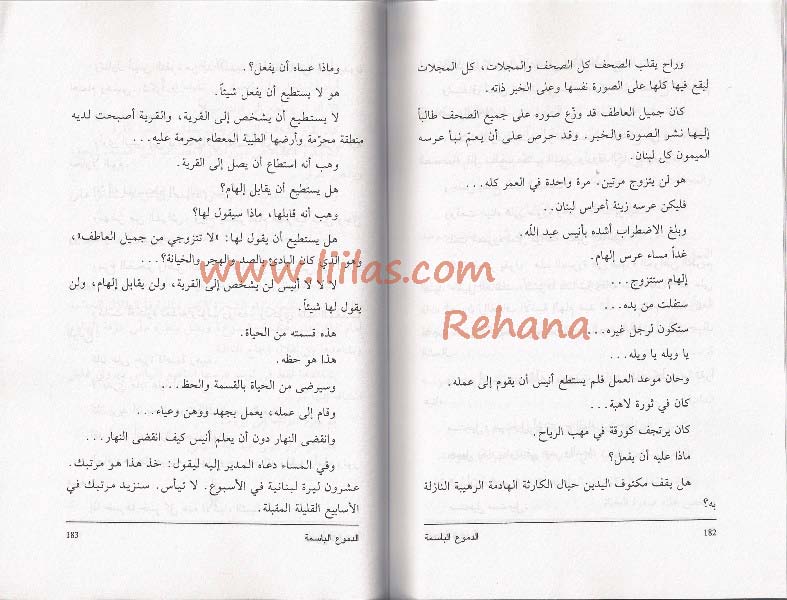 وراح يقلب الصحف كل الصحف والمجلات، كل المجلات
ليقع فيها كلها على الصورة نفسها وعلى الخبر ذاته.
كان جميل العاطف قد وزّع صوره على جميع الصحف طالباً
إليها نشر الصورة والخبر. وقد حرص على أن يعمّ نبأ عرسه
الميمون كل لبنان.
هو لن يتزوج مرتين. مرة واحدة في العمر كله...
فليكن عرسه زينة أعراس لبنان..
وبلغ الاضطراب أشده بأنيس عبد الله.
غداً مساء عرس إلهام.
إلهام ستتزوج...
ستفلت من يده...
ستكون لرجل غيره...
يا ويله يا ويله...
وحان موعد العمل فلم يستطع أنيس أن يقوم إلى عمله.
كان في ثورة لاهبة...
كان يرتجف كورقة في مهب الرياح.
ماذا عليه أن يفعل؟
هل يقف مكتوف اليدين حيال الكارثة الهادمة الرهيبة النازلة
به؟
182
الدموع الباسمة
وماذا عساه أن يفعل؟.
هو لا يستطيع أن يفعل شيئاً.
لا يستطيع أن يشخص إلى القرية، والقرية أصبحت لديه
منطقة محرّمة وأرضها الطيبة المعطاء محرمة عليه...
وهب أنه استطاع أن يصل إلى القرية.
هل يستطيع أن يقابل إلهام؟
وهب أنه قابلها، ماذا سيقول لها؟
هل يستطيع أن يقول لها: «لا تتزوجي من جميل العاطف»،
وهو الذي كان البادئ بالصد والهجر والخيانة؟...
لا لا لا أنيس لن يشخص إلى القرية، ولن يقابل إلهام، ولن
يقول لها شيئاً.
هذه قسمته من الحياة.
هذا هو حظه.
وسيرضى من الحياة بالقسمة والحظ...
وقام إلى عمله، يعمل بجهد ووهن وعياء...
وانقضى النهار دون أن يعلم أنيس كيف انقضى النهار...
وفي المساء دعاه المدير إليه ليقول: خذ هذا هو مرتبك.
عشرون ليرة لبنانية في الأسبوع. لا تيأس. سنزيد مرتبك في
الأسابيع القليلة المقبلة.
الدموع الباسمة
183
www.liilas.com
Rehana